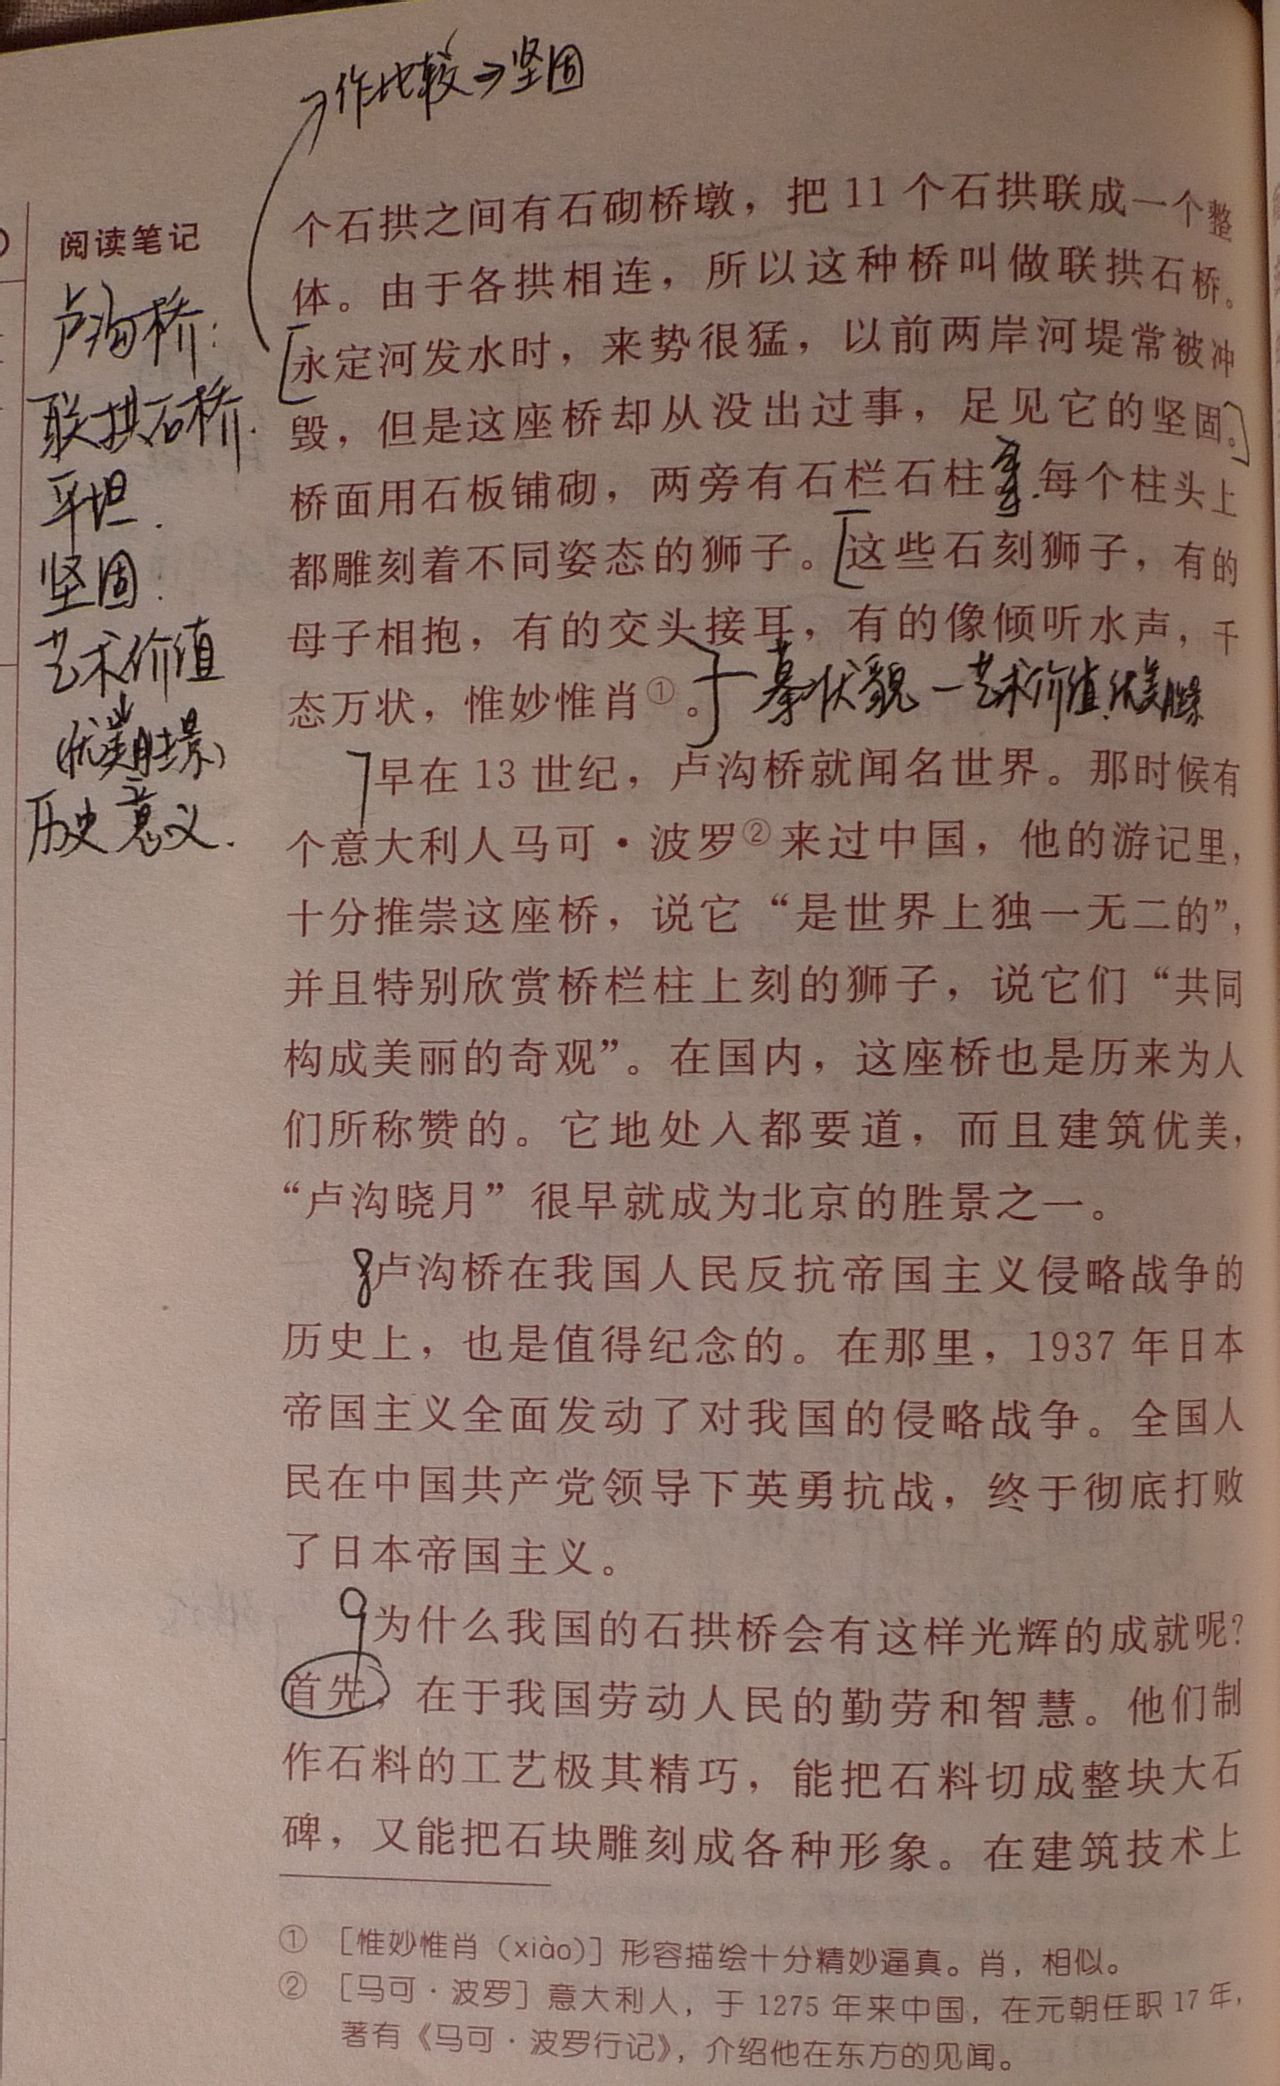 →作比较⇒坚固
阅读笔记
卢沟桥:
联拱石桥.
平坦.
坚固.
艺术价值
(优美胜景)
历史意义.
个石拱之间有石砌桥墩，把 11 个石拱联成一个整
体。由于各拱相连，所以这种桥叫做联拱石桥。
[永定河发水时，来势很猛，以前两岸河堤常被冲
毁，但是这座桥却从没出过事，足见它的坚固。]
桥面用石板铺砌，两旁有石栏石柱。每个柱头上
都雕刻着不同姿态的狮子。[这些石刻狮子，有的
母子相抱，有的交头接耳，有的像倾听水声，千
态万状，惟妙惟肖①。]
摹状貌—艺术价值,优美胜景
7早在 13 世纪，卢沟桥就闻名世界。那时候有
个意大利人马可·波罗②来过中国，他的游记里，
十分推崇这座桥，说它“是世界上独一无二的”，
并且特别欣赏桥栏柱上刻的狮子，说它们“共同
构成美丽的奇观”。在国内，这座桥也是历来为人
们所称赞的。它地处入都要道，而且建筑优美，
“卢沟晓月”很早就成为北京的胜景之一。
8卢沟桥在我国人民反抗帝国主义侵略战争的
历史上，也是值得纪念的。在那里，1937 年日本
帝国主义全面发动了对我国的侵略战争。全国人
民在中国共产党领导下英勇抗战，终于彻底打败
了日本帝国主义。
9为什么我国的石拱桥会有这样光辉的成就呢？
首先，在于我国劳动人民的勤劳和智慧。他们制
作石料的工艺极其精巧，能把石料切成整块大石
碑，又能把石块雕刻成各种形象。在建筑技术上
① [惟妙惟肖（xiào）] 形容描绘十分精妙逼真。肖，相似。
② [马可·波罗] 意大利人，于 1275 年来中国，在元朝任职 17 年，
著有《马可·波罗行记》，介绍他在东方的见闻。